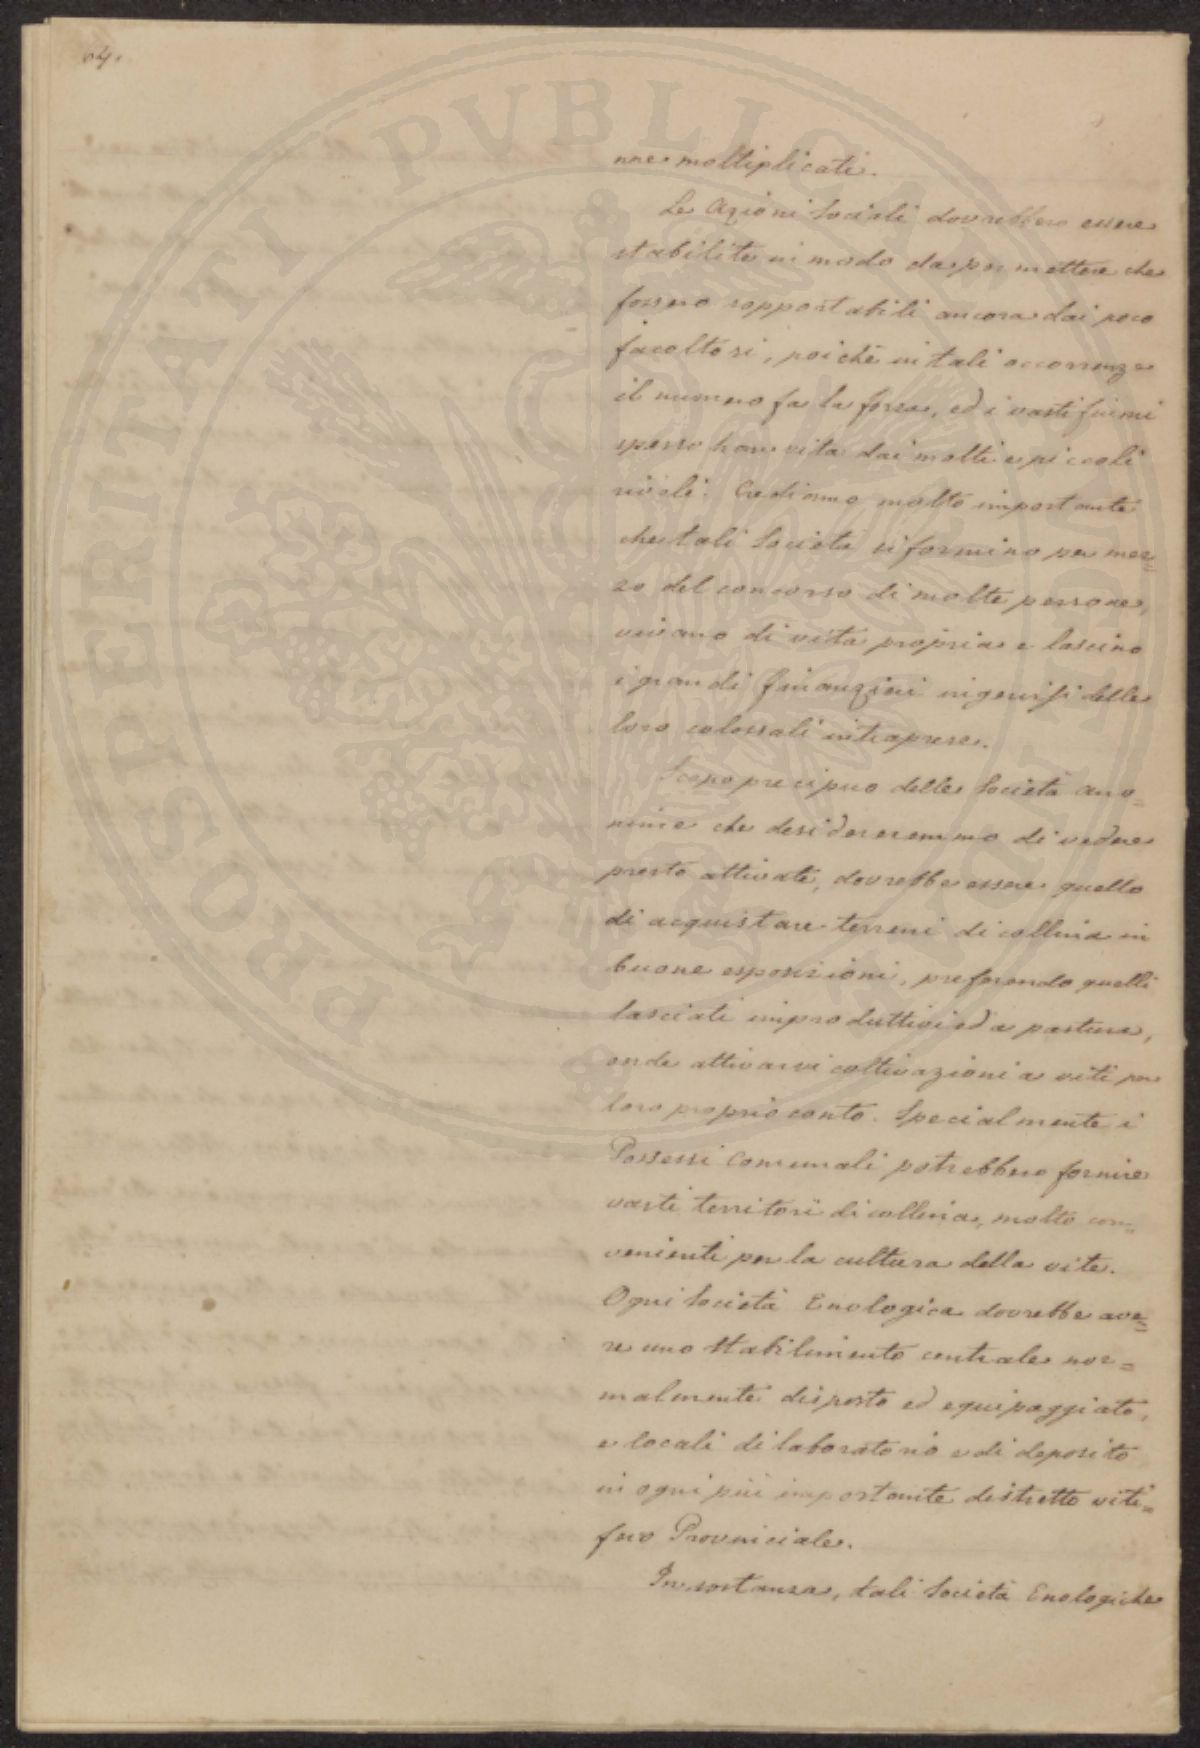 64.
nne moltiplicati.
Le Azioni Sociali dovrebbero essere
stabilite in modo da permettere che
fossero sopportabili ancora dai poco
facoltosi, poichè in tali occorrenze
il numero fa la forza, ed i vasti fiumi
spesso han vita dai molti e piccoli
rivoli. Crediamo molto importante
che tali Società si formino per mez=
zo del concorso di molte persone,
vivano di vita propria e lascino
i grandi finanzieri in
loro colossali intraprese.
Scopo precipuo delle Società ano=
nime che desidereremmo di vedere
presto attivate, dovrebbe essere quello
di acquistare terreni di collina in
buone esposizioni, preferendo quelli
lasciati improduttivi ed a pastura,
onde attivarvi coltivazioni a viti per
loro proprio conto. Specialmente i
Possessi Comunali potrebbero fornire
vasti territori di collina, molto con=
venienti per la cultura della vite.
Ogni Società Enologica dovrebbe ave=
re uno Stabilimento centrale nor=
malmente disposto ed equipaggiato,
e locali di laboratorio e di deposito
in ogni più importante distretto viti=
fero Provinciale.
In sostanza, tali Società Enologiche
PROSPERITATI PVBLICAE